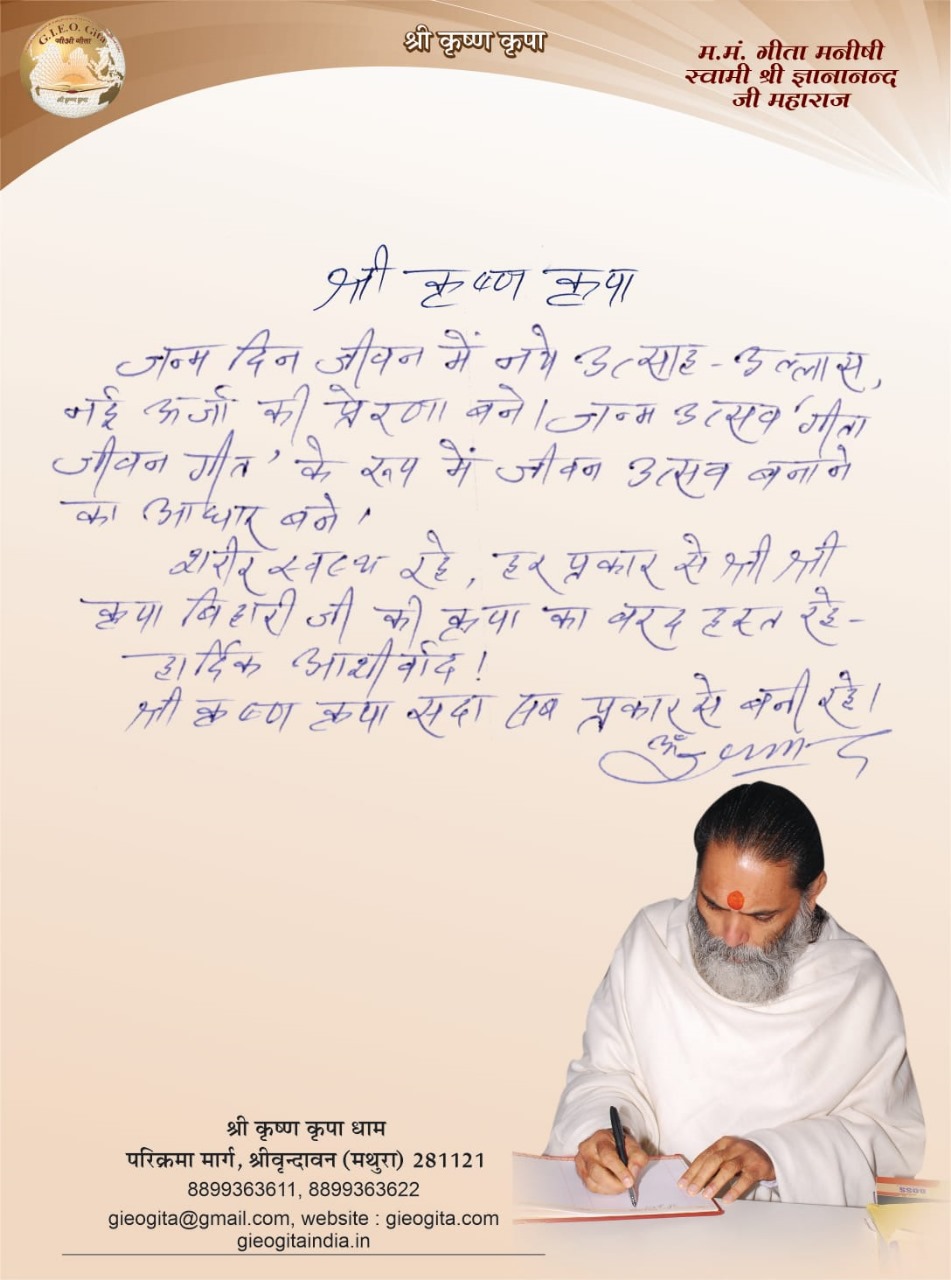 G.I.E.O. Gita
जीओ गीता
श्री कृष्ण कृपा
श्री कृष्ण कृपा
म.मं. गीता मनीषी
स्वामी श्री ज्ञानानन्द
जी महाराज
श्री कृष्ण कृपा
जन्म दिन जीवन में नये उत्साह - उल्लास,
नई ऊर्जा की प्रेरणा बने। जन्म उत्सव 'गीता
जीवन गीत' के रूप में जीवन उत्सव बनाने
का आधार बने।
शरीर स्वस्थ रहे, हर प्रकार से श्री श्री
कृपा बिहारी जी की कृपा का वरद हस्त रहे-
हार्दिक आशीर्वाद!
श्री कृष्ण कृपा सदा सब प्रकार से बनी रहे।
ॐ
श्री कृष्ण कृपा धाम
परिक्रमा मार्ग, श्रीवृन्दावन (मथुरा) 281121
8899363611, 8899363622
gieogita@gmail.com, website : gieogita.com
gieogitaindia.in